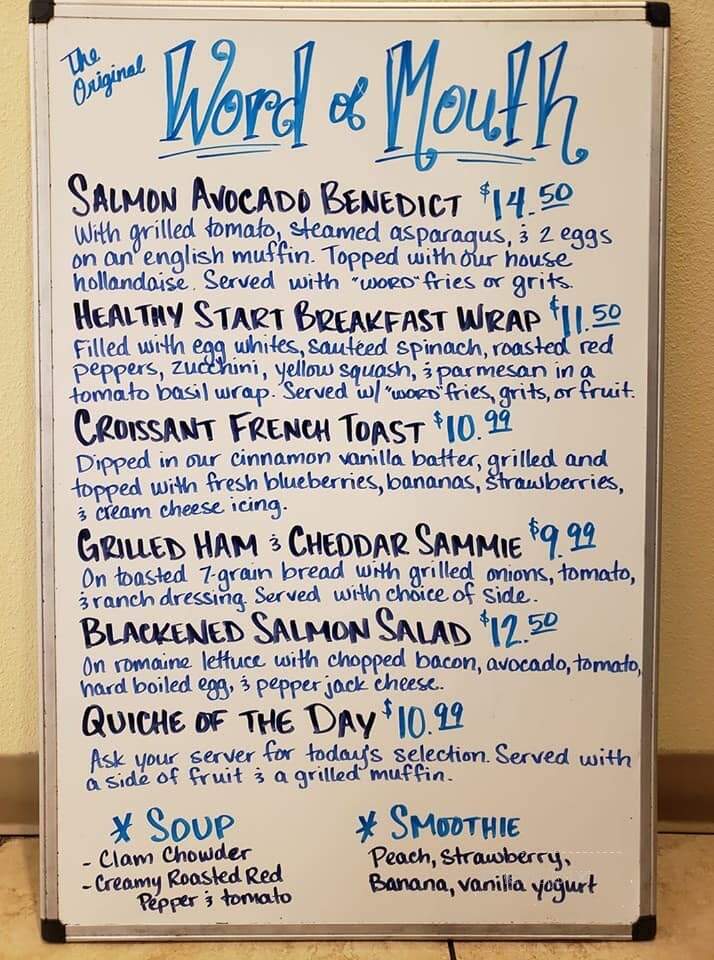 The Original
Word of Mouth
SALMON AVOCADO BENEDICT $14.50
With grilled tomato, steamed asparagus, & 2 eggs
on an english muffin. Topped with our house
hollandaise. Served with "WORD" fries or grits.
HEALTHY START BREAKFAST WRAP $11.50
Filled with egg whites, sautéed spinach, roasted red
peppers, zucchini, yellow squash, & parmesan in a
tomato basil wrap. Served w/ "WORD" fries, grits, or fruit.
CROISSANT FRENCH TOAST $10.99
Dipped in our cinnamon vanilla batter, grilled and
topped with fresh blueberries, bananas, strawberries,
& cream cheese icing.
GRILLED HAM & CHEDDAR SAMMIE $9.99
On toasted 7-grain bread with grilled onions, tomato,
& ranch dressing. Served with choice of side.
BLACKENED SALMON SALAD $12.50
On romaine lettuce with chopped bacon, avocado, tomato,
hard boiled egg, & pepper jack cheese.
QUICHE OF THE DAY $10.99
Ask your server for today's selection. Served with
a side of fruit & a grilled muffin.
* SOUP
- Clam Chowder
- Creamy Roasted Red
Pepper & tomato
* SMOOTHIE
Peach, Strawberry,
Banana, vanilla yogurt